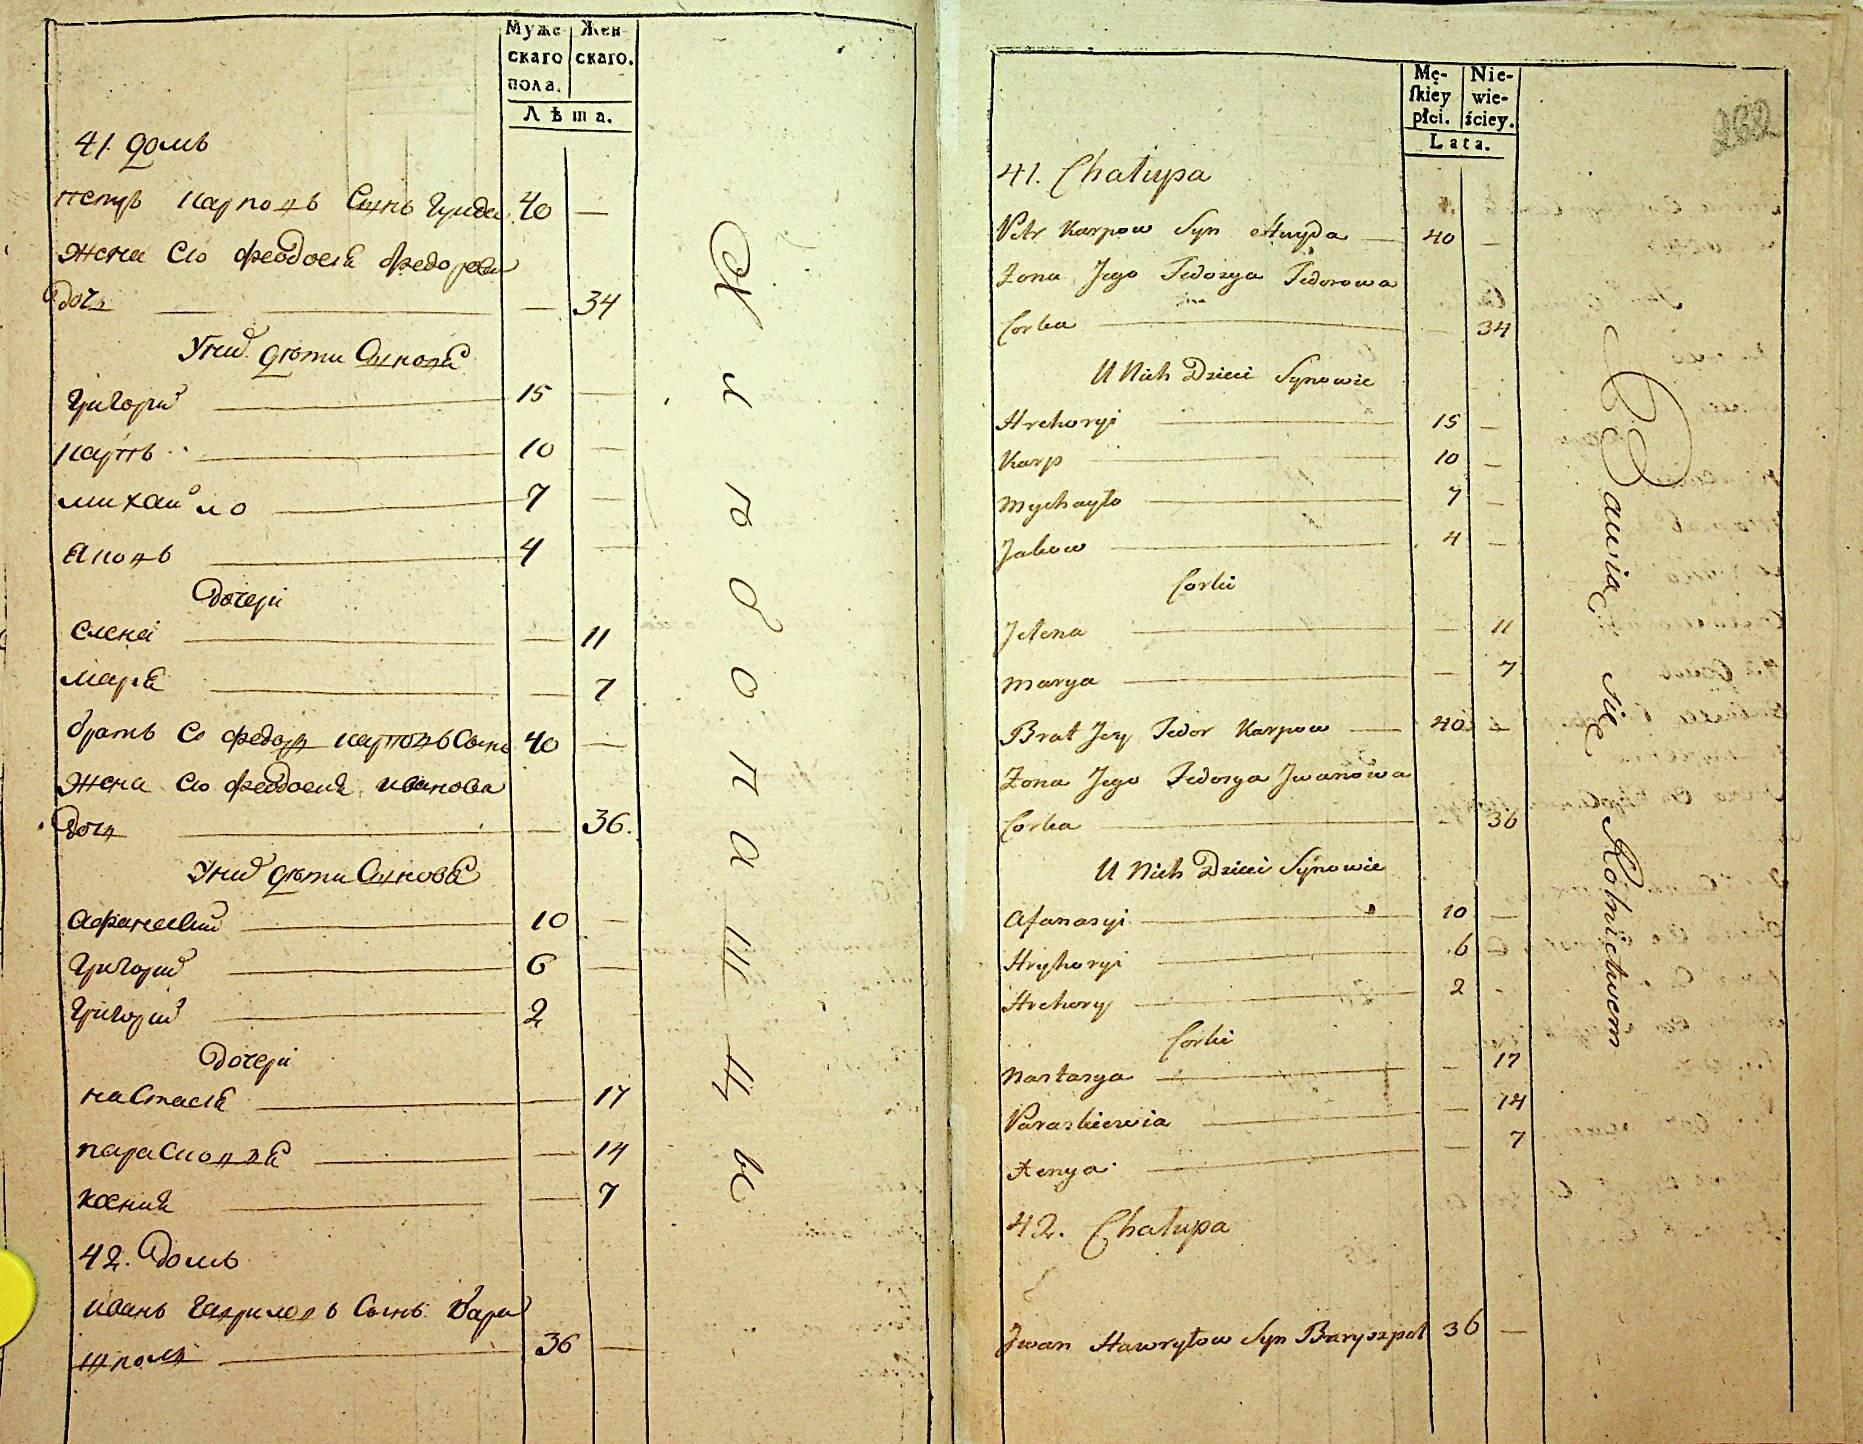 Муже
скаго
пола.
Жен
скаго.
Лѣта.
41. домъ
петръ карповъ Сынъ Грида 40 —
жена Его феодосія федорова
Дочь — 34
У них дѣти Сыновѣ
Григорий 15 —
карпъ 10 —
михайло 7 —
Яковъ 4 —
Дочери
Елена — 11
Маря — 7
братъ Ео федоръ карповъ Сынъ 40 —
жена Его феодосия иванова
Дочь — 36.
У них дѣти Сыновѣ
Афанасий 10 —
Григорий 6 —
Григорий 2
Дочери
настасія — 17
парасковія — 14
ксения — 7
42. Домъ
иванъ Гаврилов ъ Сынъ Бари
шполъ 36 —
Хлѣбопашцы
Mę-
skiey
płci.
Nie-
wie-
ściey.
Lata.
262
41. Chałupa
Petr Karpow Syn Hryda — 40 —
Żona Jego Fedosya Fedorowa
Corka — 34
U Nich Dzieci Synowie
Hrehoryi 15 —
Karp 10 —
Mychayło 7 —
Jakow 4 —
Corki
Jelena — 11
Marya — 7
Brat Jey Fedor Karpow — 40 —
Żona Jego Fedosya Jwanowa
Corka — 36
U Nich Dzieci Synowie
Afanasyi 10 —
Hryhoryi 6
Hrehory 2 -
Corki
Nastasya — 17
Paraskiewia — 14
Xenya — 7
42. Chałupa
Jwan Hawryłow Syn Baryszpol 36 —
Bawią się Rolnictwem